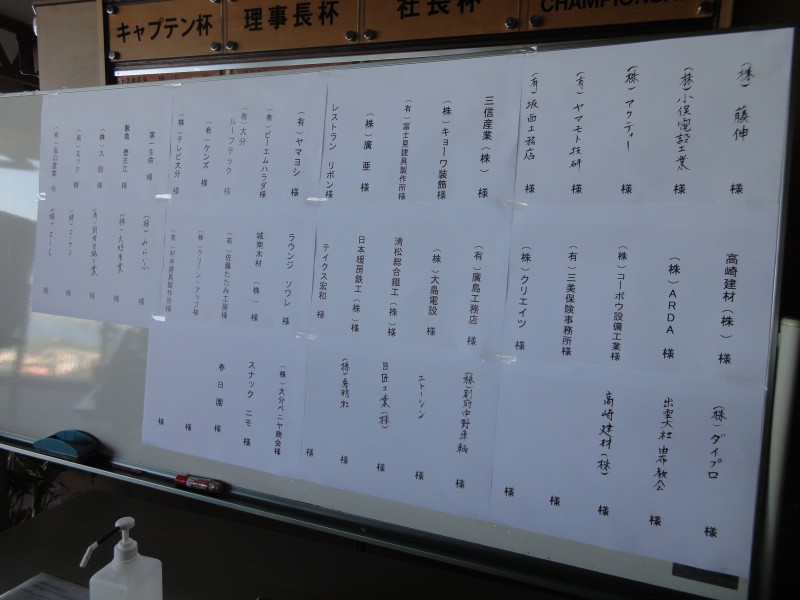 キャプテン杯
理事長杯
社長杯
CHAMPIONSH
(株) 藤伸 様
(株) 小俣電設工業 様
(株) アクティー 様
(有) ヤマモト技研 様
(有) 坂西工務店 様
三信産業(株) 様
(株) キョーワ装飾様
(有) 富士見建具製作所様
(株) 廣亜 様
レストラン リボン様
(有) ヤマヨシ 様
(有) ビーエムハラダ様
(有) 大分ルーフテック 様
(有) ケンズ 様
(株) テレビ大分 様
第一生命 様
(株) 九設 様
(有) モック 様
(有) 坂口産業 様
高崎建材(株) 様
(株) ARDA 様
(株) コーボウ設備工業様
(有) 三美保険事務所様
(株) クリエイツ 様
(有) 廣島工務店 様
(株) 大島電設 様
清松総合鐵工(株) 様
日本暖房鉄工(株) 様
テイクス宏和 様
ラウンジ ソワレ 様
城南木材(株) 様
(有) 佐藤たたみ工房様
(株) クリーン・アップ様
(有) 村井建具製作所様
様
様
様
様
様
(株) ダイプロ 様
出雲大社 由布教会 様
高崎建材(株) 様
様
様
(株) 別府中野車輌 様
エトーシン 様
日匠工業(株) 様
様
様
(株) 大分ベニヤ商会様
スナック ニモ 様
春日園 様
様
様